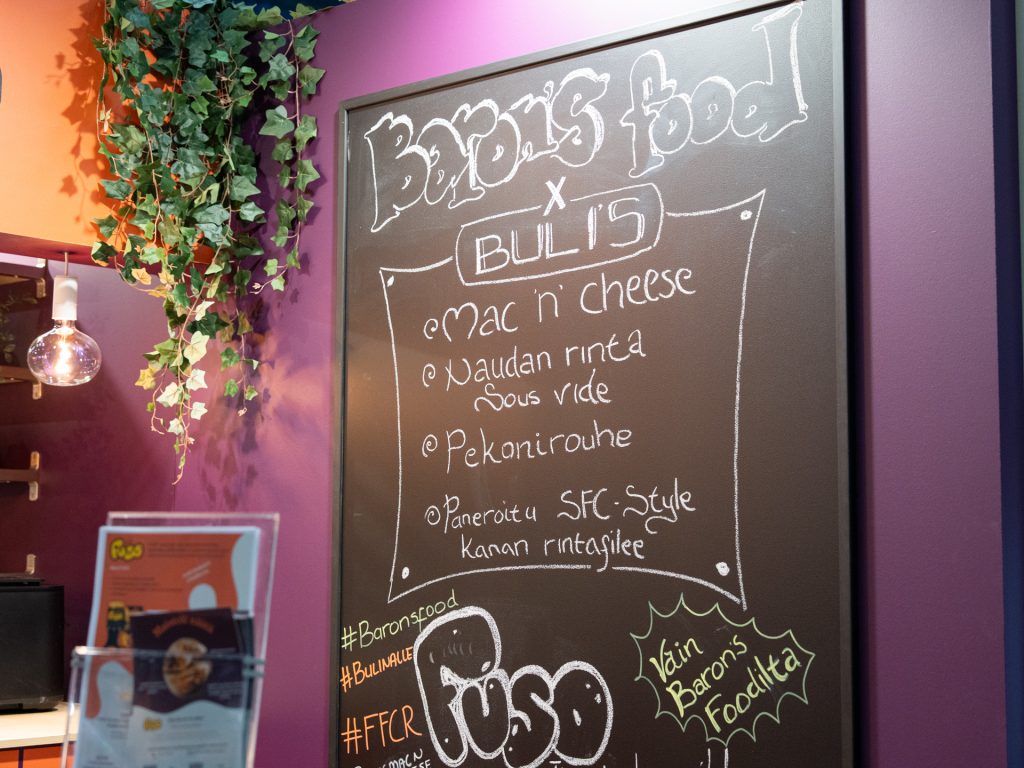 Baron's food
X
BULI'S
Mac 'n' cheese
Naudan rinta
Sous vide
Pekonirouhe
Paneroitu SFC-Style
Kanan rintafilee
#Baronsfood
#BULINALLE
#FFCR
Fuso
Vain
Baron's
Foodilta
Fuso